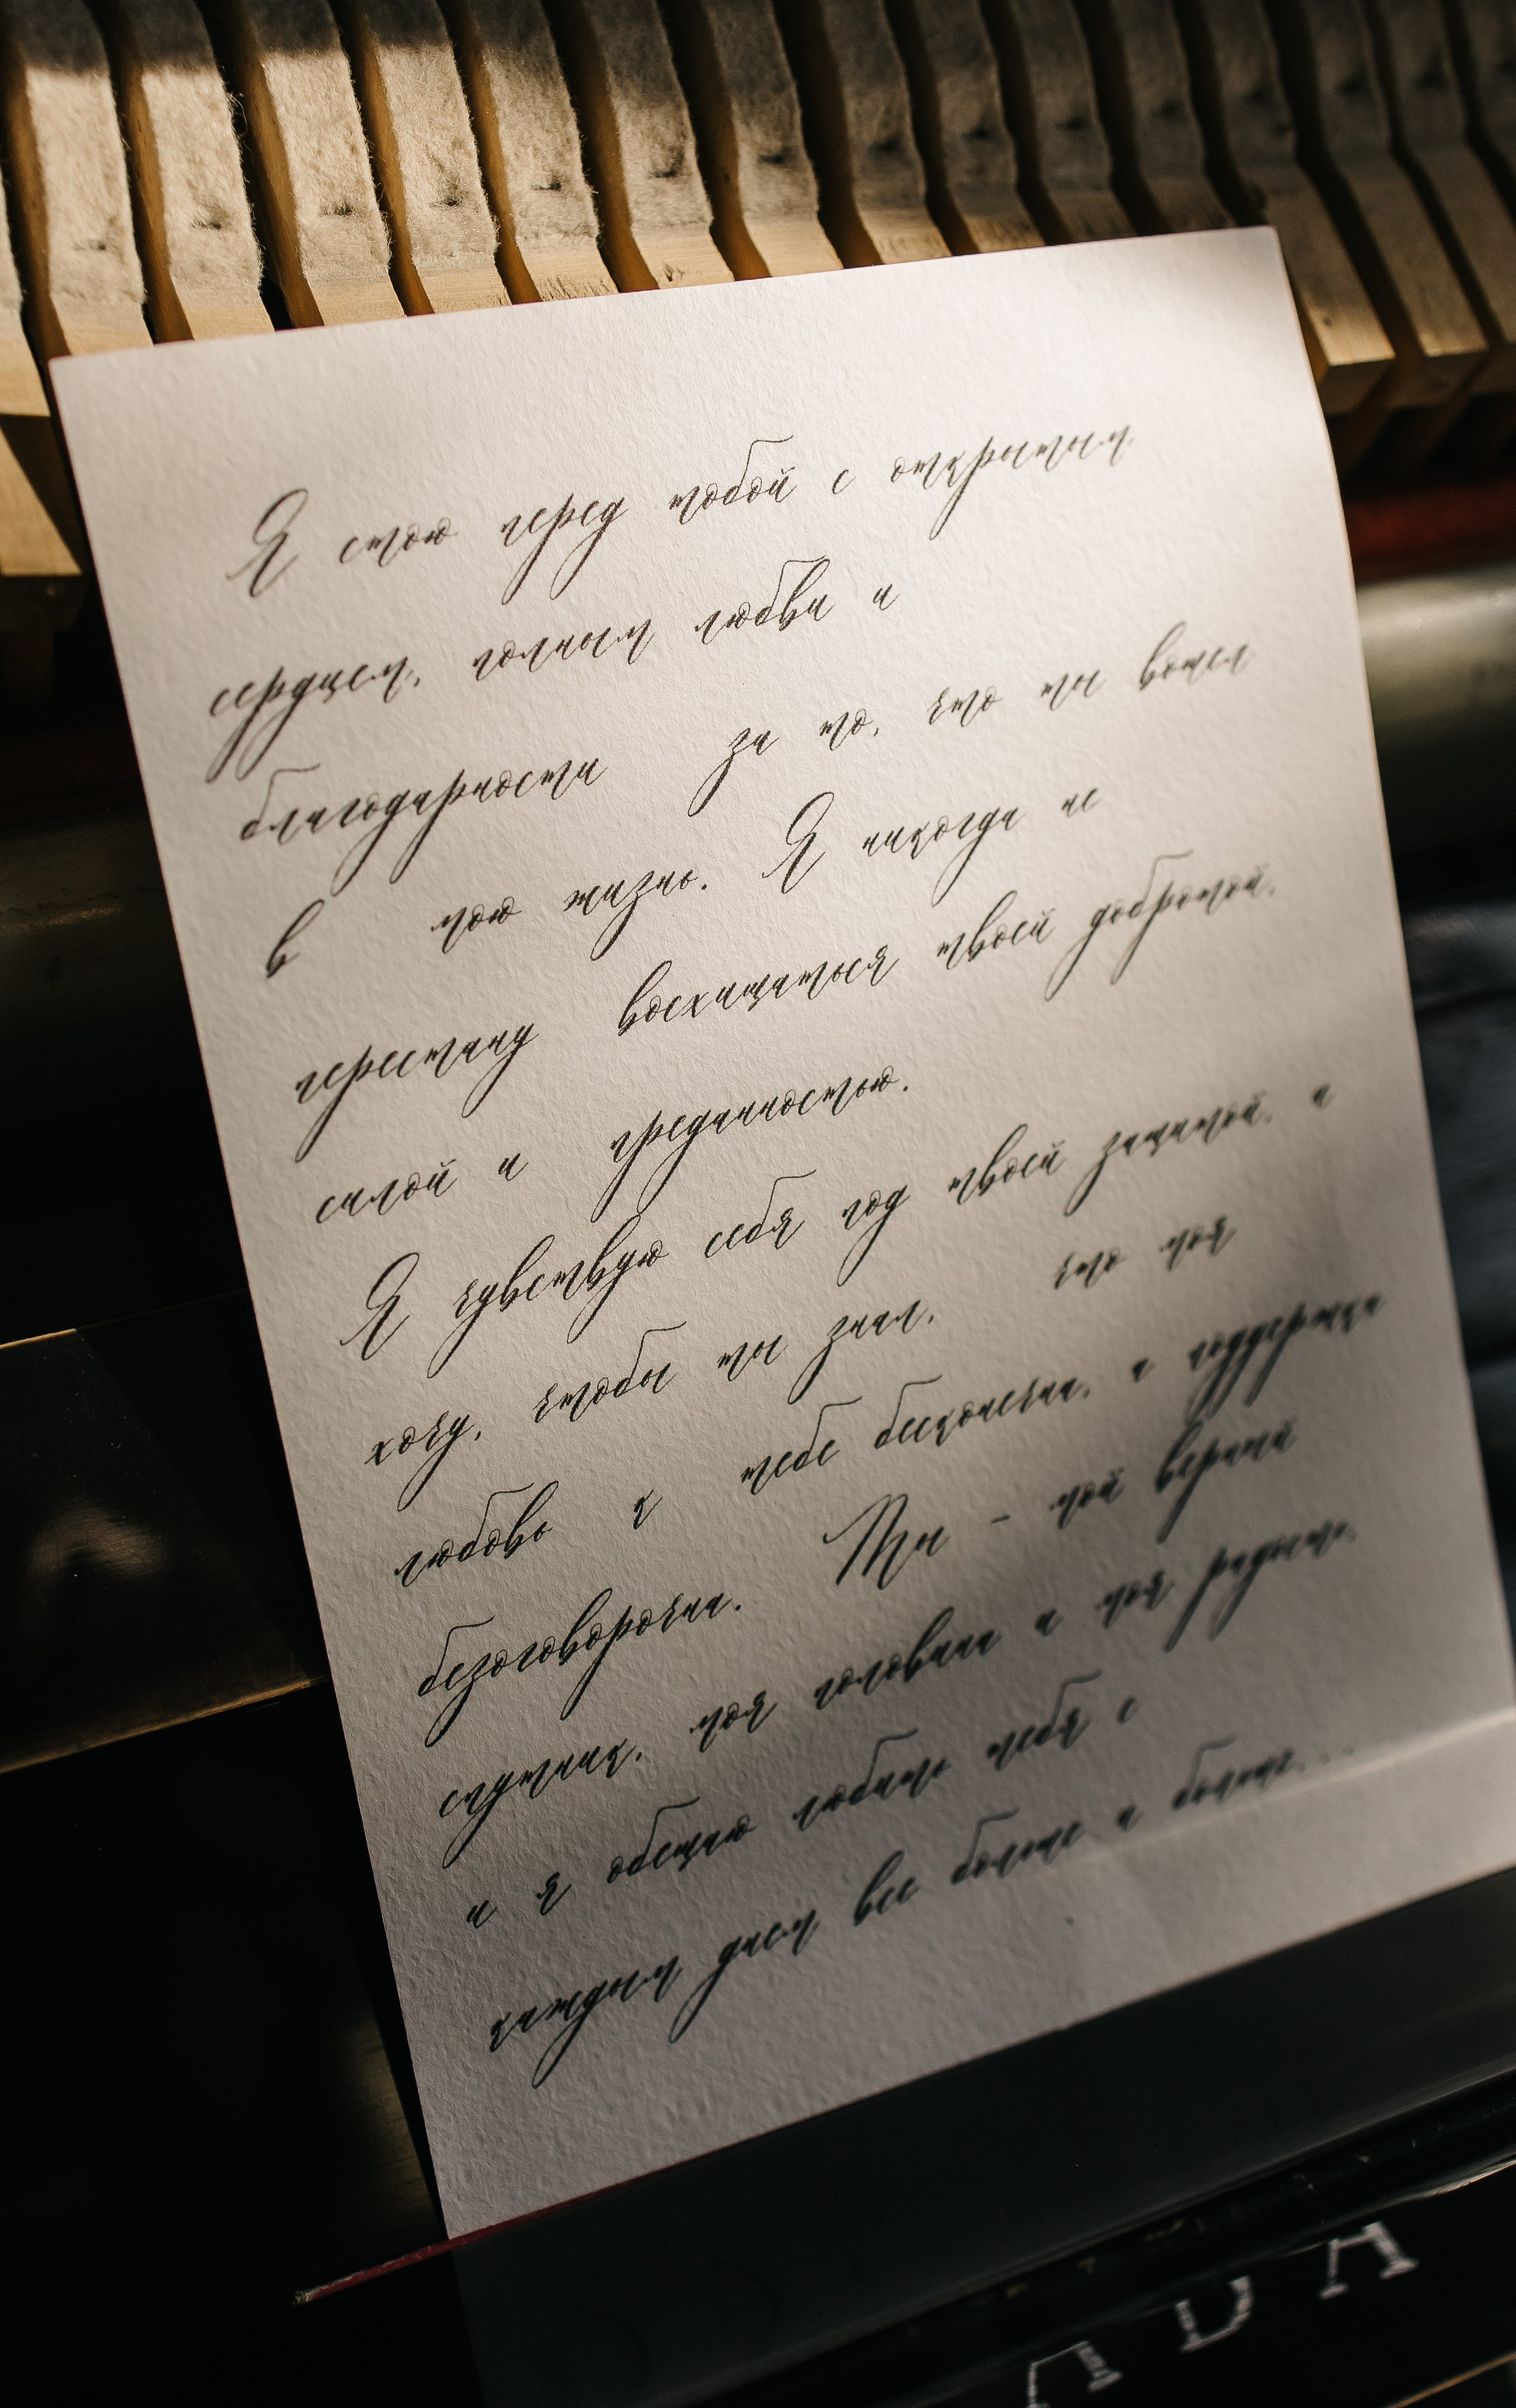 Я стою перед тобой с открытым
сердцем, полным любви и
благодарности за то, что ты вошел
в мою жизнь. Я никогда не
перестану восхищаться твоей добротой,
силой и преданностью.
Я чувствую себя под твоей защитой, и
хочу, чтобы ты знал, что моя
любовь к тебе бесконечна, а поддержка
безоговорочна. Ты - мой верный
спутник, моя половина и моя радость,
и я обещаю любить тебя с
каждым днем все больше и больше...